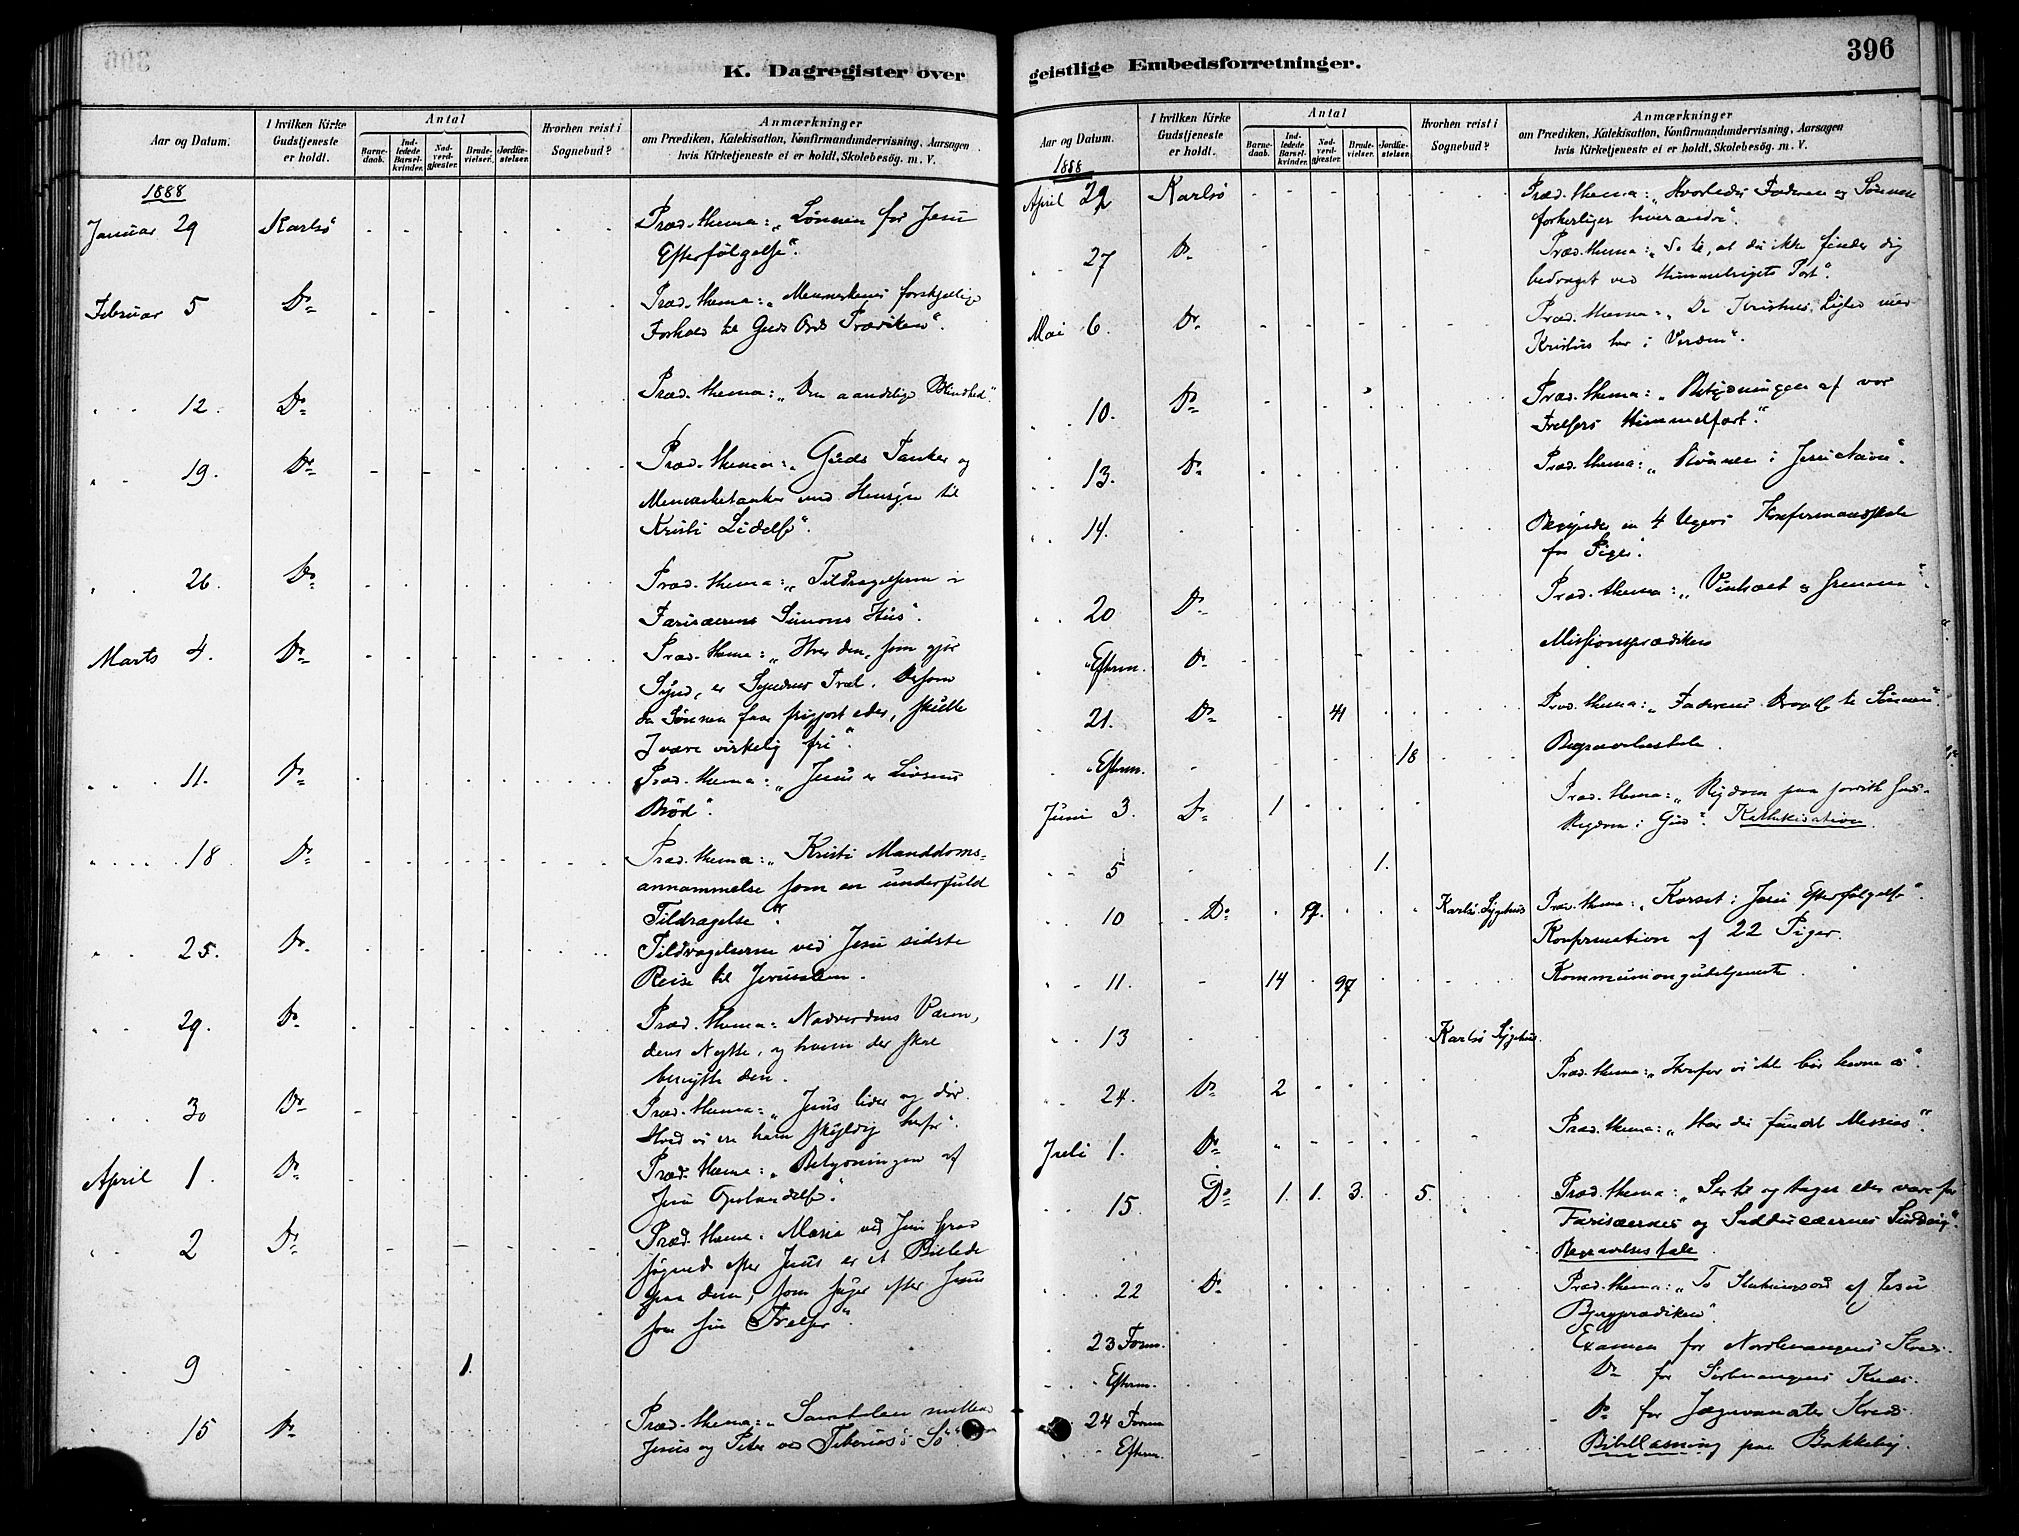 K. Dagregister over
Aar og Datum.
I hvilken Kirke
Gudstjeneste
er holdt.
Antal
Barne-
daab.
Ind-
ledede
Barsel-
kvinder.
Nad-
verd-
gjester.
Brude-
vielser.
Jordfæ-
stelser.
Hvorhen reist i
Sognebud?
Anmærkninger
om Prædiken, Katekisation, Konfirmandundervisning, Aarsagen
hvis Kirketjeneste ei er holdt, Skolebesög. m. V.
1888
Januar 29 Karlsö Præd. thema: „Lönnen for Jesu
Efterfölgelse“.
Februar 5 Do Præd. thema: „Menneskenes forskjellige
Forhold til Guds Ords Prædiken“.
" " 12. Do Præd. thema: „Den aandelige Blindhed“
" " 19. Do Præd. thema: „Guds Tanker og
Mennesketanker med Hensyn til
Kristi Lidelse“.
" " 26 Do Præd. thema: „Tildragelserne i
Farisæerens Simons Hus“.
Marts 4. Do Præd. thema: „Hver den, som gjør
Synd, er Syndens Træl. Dersom
da Sønnen faar frigjort eder, skulle
I være virkelig fri“.
" " 11. Do Præd. thema: „Jesus er Livsens
Bröd“.
" " 18 Do Præd. thema: „Kristi Manddoms-
annammelse som en underfuld
Tildragelse“.
" " 25. Do Tildragelserne ved Jesu sidste
Reise til Jerusalem.
" " 29. Do Præd. thema: Nadverdens Væsen,
dens Nytte, og hvem der skal
benytte den.
" " 30 Do Præd. thema: „Jesus lider og dör.
Hvad vi ere ham skyldig herfor“.
April 1. Do Præd. thema: „Betydningen af
Jesu Opstandelse“.
" " 2 Do Præd. thema: Maria ved Jesu Grav
søgende efter Jesus er et Billede
paa dem, som søger efter Jesus
som sin Frelser“.
" " 9 1.
" " 15 Do Præd. thema: „Samtalen mellem
Jesus og Peter ved Tiberias's Sö“.
geistlige Embedsforretninger.
396
Aar og Datum.
I hvilken Kirke
Gudstjeneste
er holdt.
Antal
Barne-
daab.
Ind-
ledede
Barsel-
kvinder.
Nad-
verd-
gjester.
Brude-
vielser.
Jordfæ-
stelser.
Hvorhen reist i
Sognebud?
Anmærkninger
om Prædiken, Katekisation, Konfirmandundervisning, Aarsagen
hvis Kirketjeneste ei er holdt, Skolebesög. m. V.
1888
April 22 Karlsö Præd. thema: „Hvorledes Faderen og Sönnen
forherliger hverandre“.
" " 27 Do Præd. thema: „Se til, at du ikke finder dig
bedraget ved Himmelrigets Port“.
Mai 6. Do Præd. thema: „De Kristnes
Kristus her i Verden“.
" " 10. Do Præd. thema: „Betydningen af vor
Frelsers Himmelfart“.
" " 13. Do Præd. thema: „Bönnen i Jesu Navn“.
" " 14. Begynder en 4 Ugers Konfirmandskole
for Piger.
" " 20 Do Præd. thema: „Vintræet og Grenene“.
" Efterm. Do Missionsprædiken
" " 21. Do 41 Præd. thema: „Faderens til Sönnen“.
" Efterm. 18 Begravelsestale.
Juni 3. Do 1 Præd. thema: „Rigdom paa jordisk Gods -
Rigdom i Gud“. Kathekisation.
" " 5 1.
" " 10 Do 9. Karlsö Sygehus Præd. thema: „Korset i Jesu Efterfölgelse“.
Konfirmation af 22 Piger.
" " 11. 14 97 Kommuniongudstjeneste.
" " 13 Karlsö Sygehus.
" " 24. Do 2 Præd. thema: „Hvorfor vi ikke bör hevne os“.
Juli 1. Do Præd. thema: „Har du fundet Messias“.
" " 15 Do 1. 1. 3. 5. Præd. thema: „Ser til og tager eder vare for
Farisæernes og Sadducæernes Surdeig“.
Begravelsestale.
" " 22 Do Præd. thema: „To Slutningsord af Jesu
Bjergprædiken“.
" 23 Form. Examen for Nordlenangens Kreds.
" " Efterm. Do for Sörlenangens Kreds.
" 24 Form Do for Jægervandets Kreds.
" " Efterm. Bibellæsning paa Bakkeby.